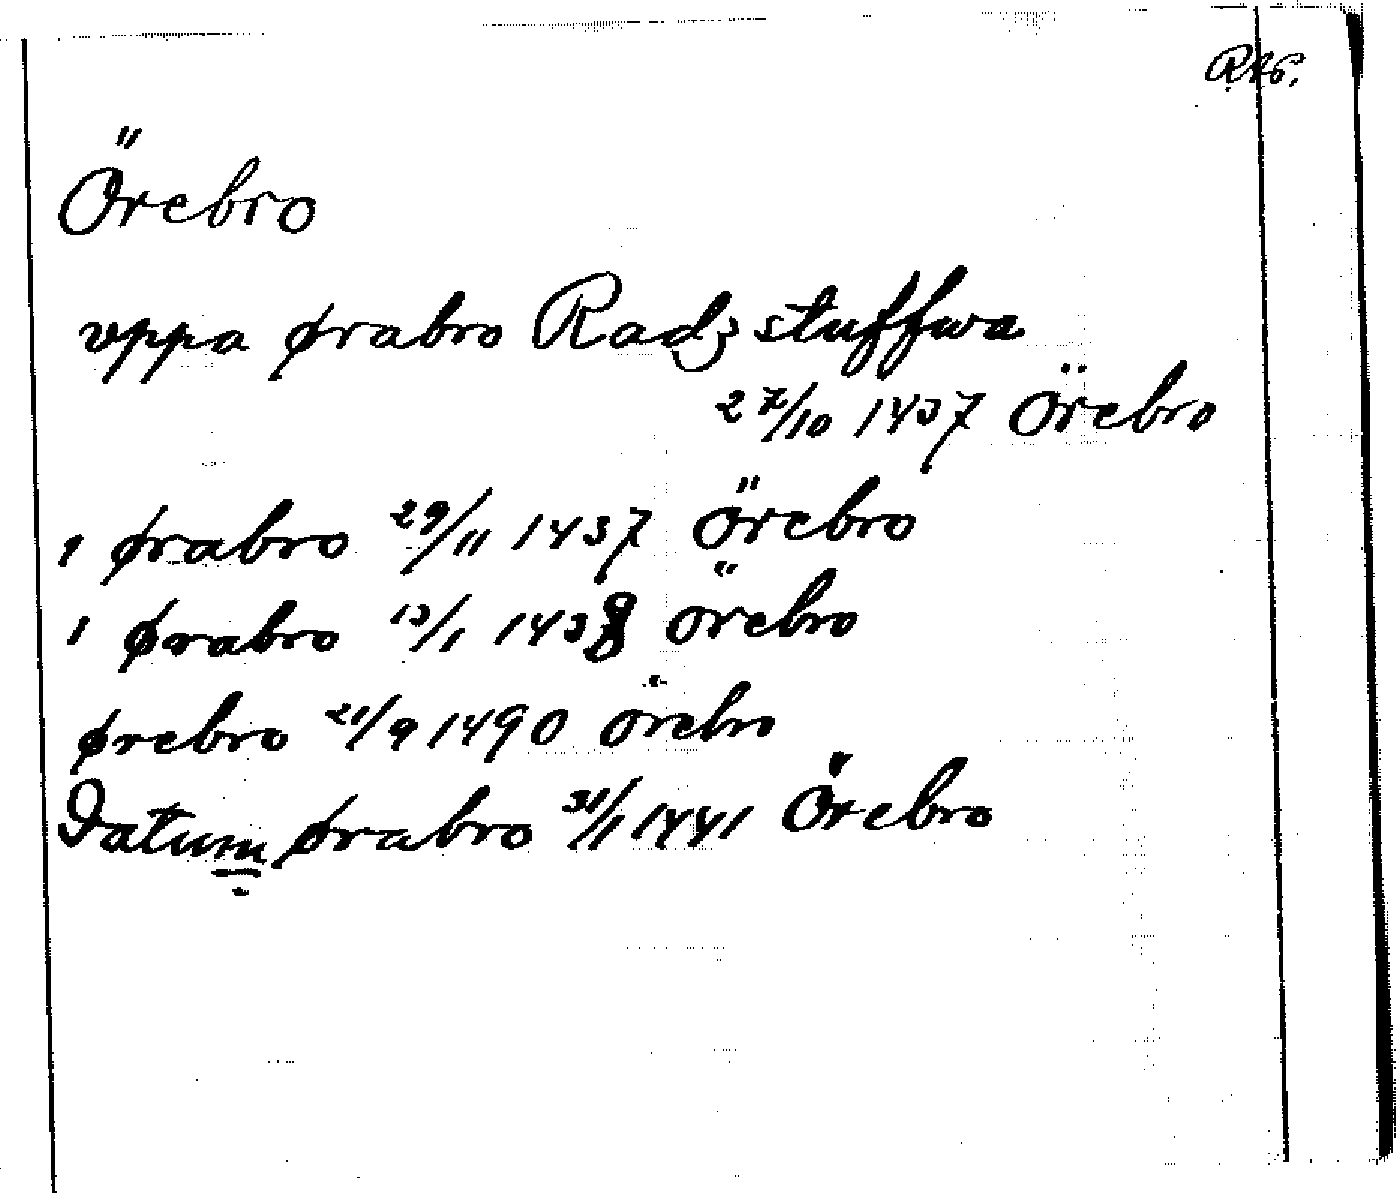 Örebro
vppa ørabro Radzstuffwa
27/10 1437 Örebro
1 ørabro 29/11 1437 Örebro
1 ørabro 13/1 1438 Örebro
ørebro 21/9 1490 Örebro
Datum ørabro 31/1 1441 Örebro